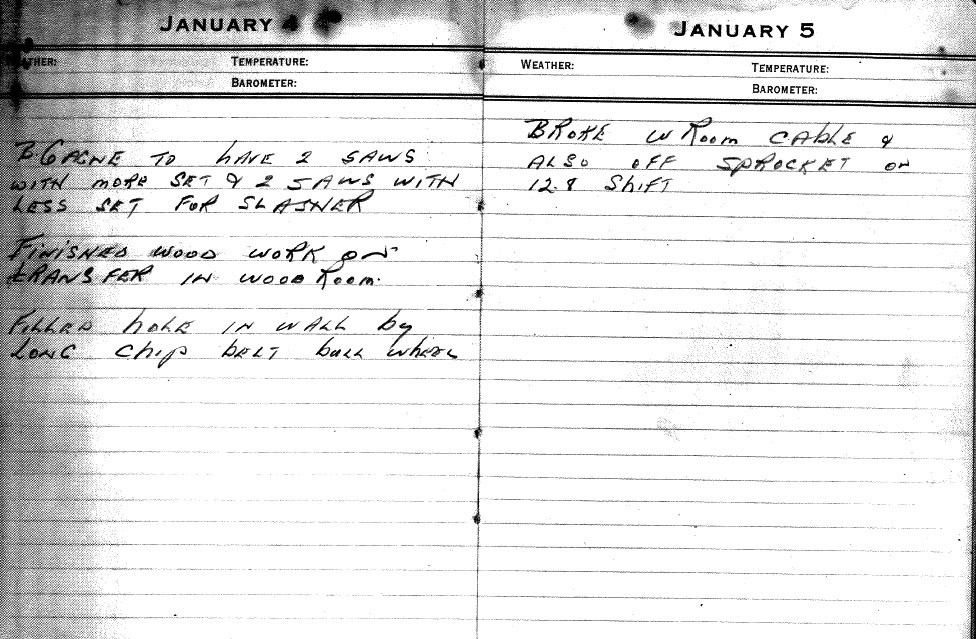 JANUARY 4
WEATHER:
TEMPERATURE:
BAROMETER:
B GAGNE TO hAVE 2 SAWS
WITH MORE SET & 2 SAWS WITH
LESS SET FOR SLASHER
FINISHED WOOD WORK ON
tRANSFER IN WOOD ROOM.
FILLED hOLE IN WALL by
LONG Chip bELT bULL WhEEL
JANUARY 5
WEATHER:
TEMPERATURE:
BAROMETER:
BROKE W ROOM CABLE &
ALSO OFF SPROCKET ON
12.8 ShIFT